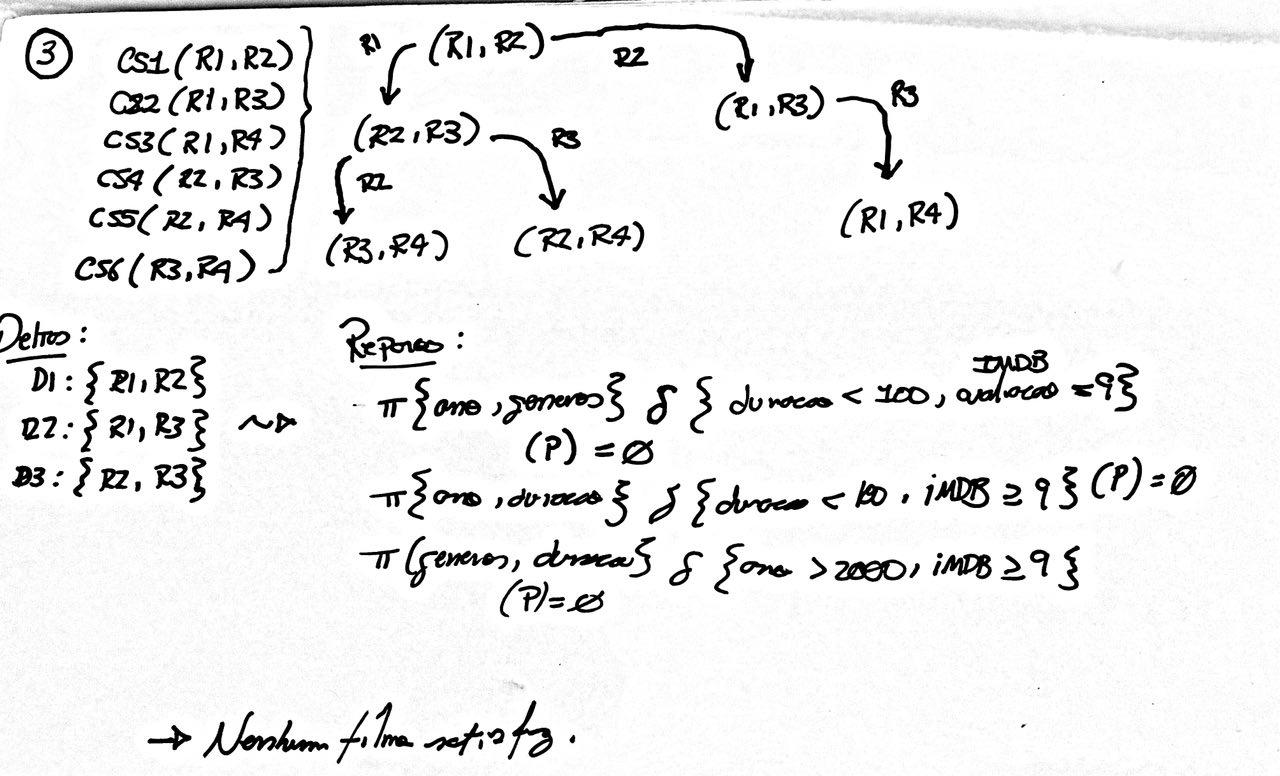 3
CS1 (R1, R2)
CS2 (R1, R3)
CS3 (R1, R4)
CS4 (R2, R3)
CS5 (R2, R4)
CS6 (R3, R4)
R1 (R1, R2) R2
(R2, R3) R3 (R1, R3) R3
R2
(R3, R4) (R2, R4) (R1, R4)
:
D1: {R1, R2}
D2: {R1, R3} ~>
D3: {R2, R3}
Reparos:
IMDB
π {ano, generos} δ { duracao < 100, avaliacao = 9}
(P) = ∅
π {ano, duracao} δ {duracao < 100, iMDB ≥ 9} (P) = ∅
π (generos, duracao} δ {ano > 2000, iMDB ≥ 9}
(P) = ∅
→ Nenhum filme satisfaz.